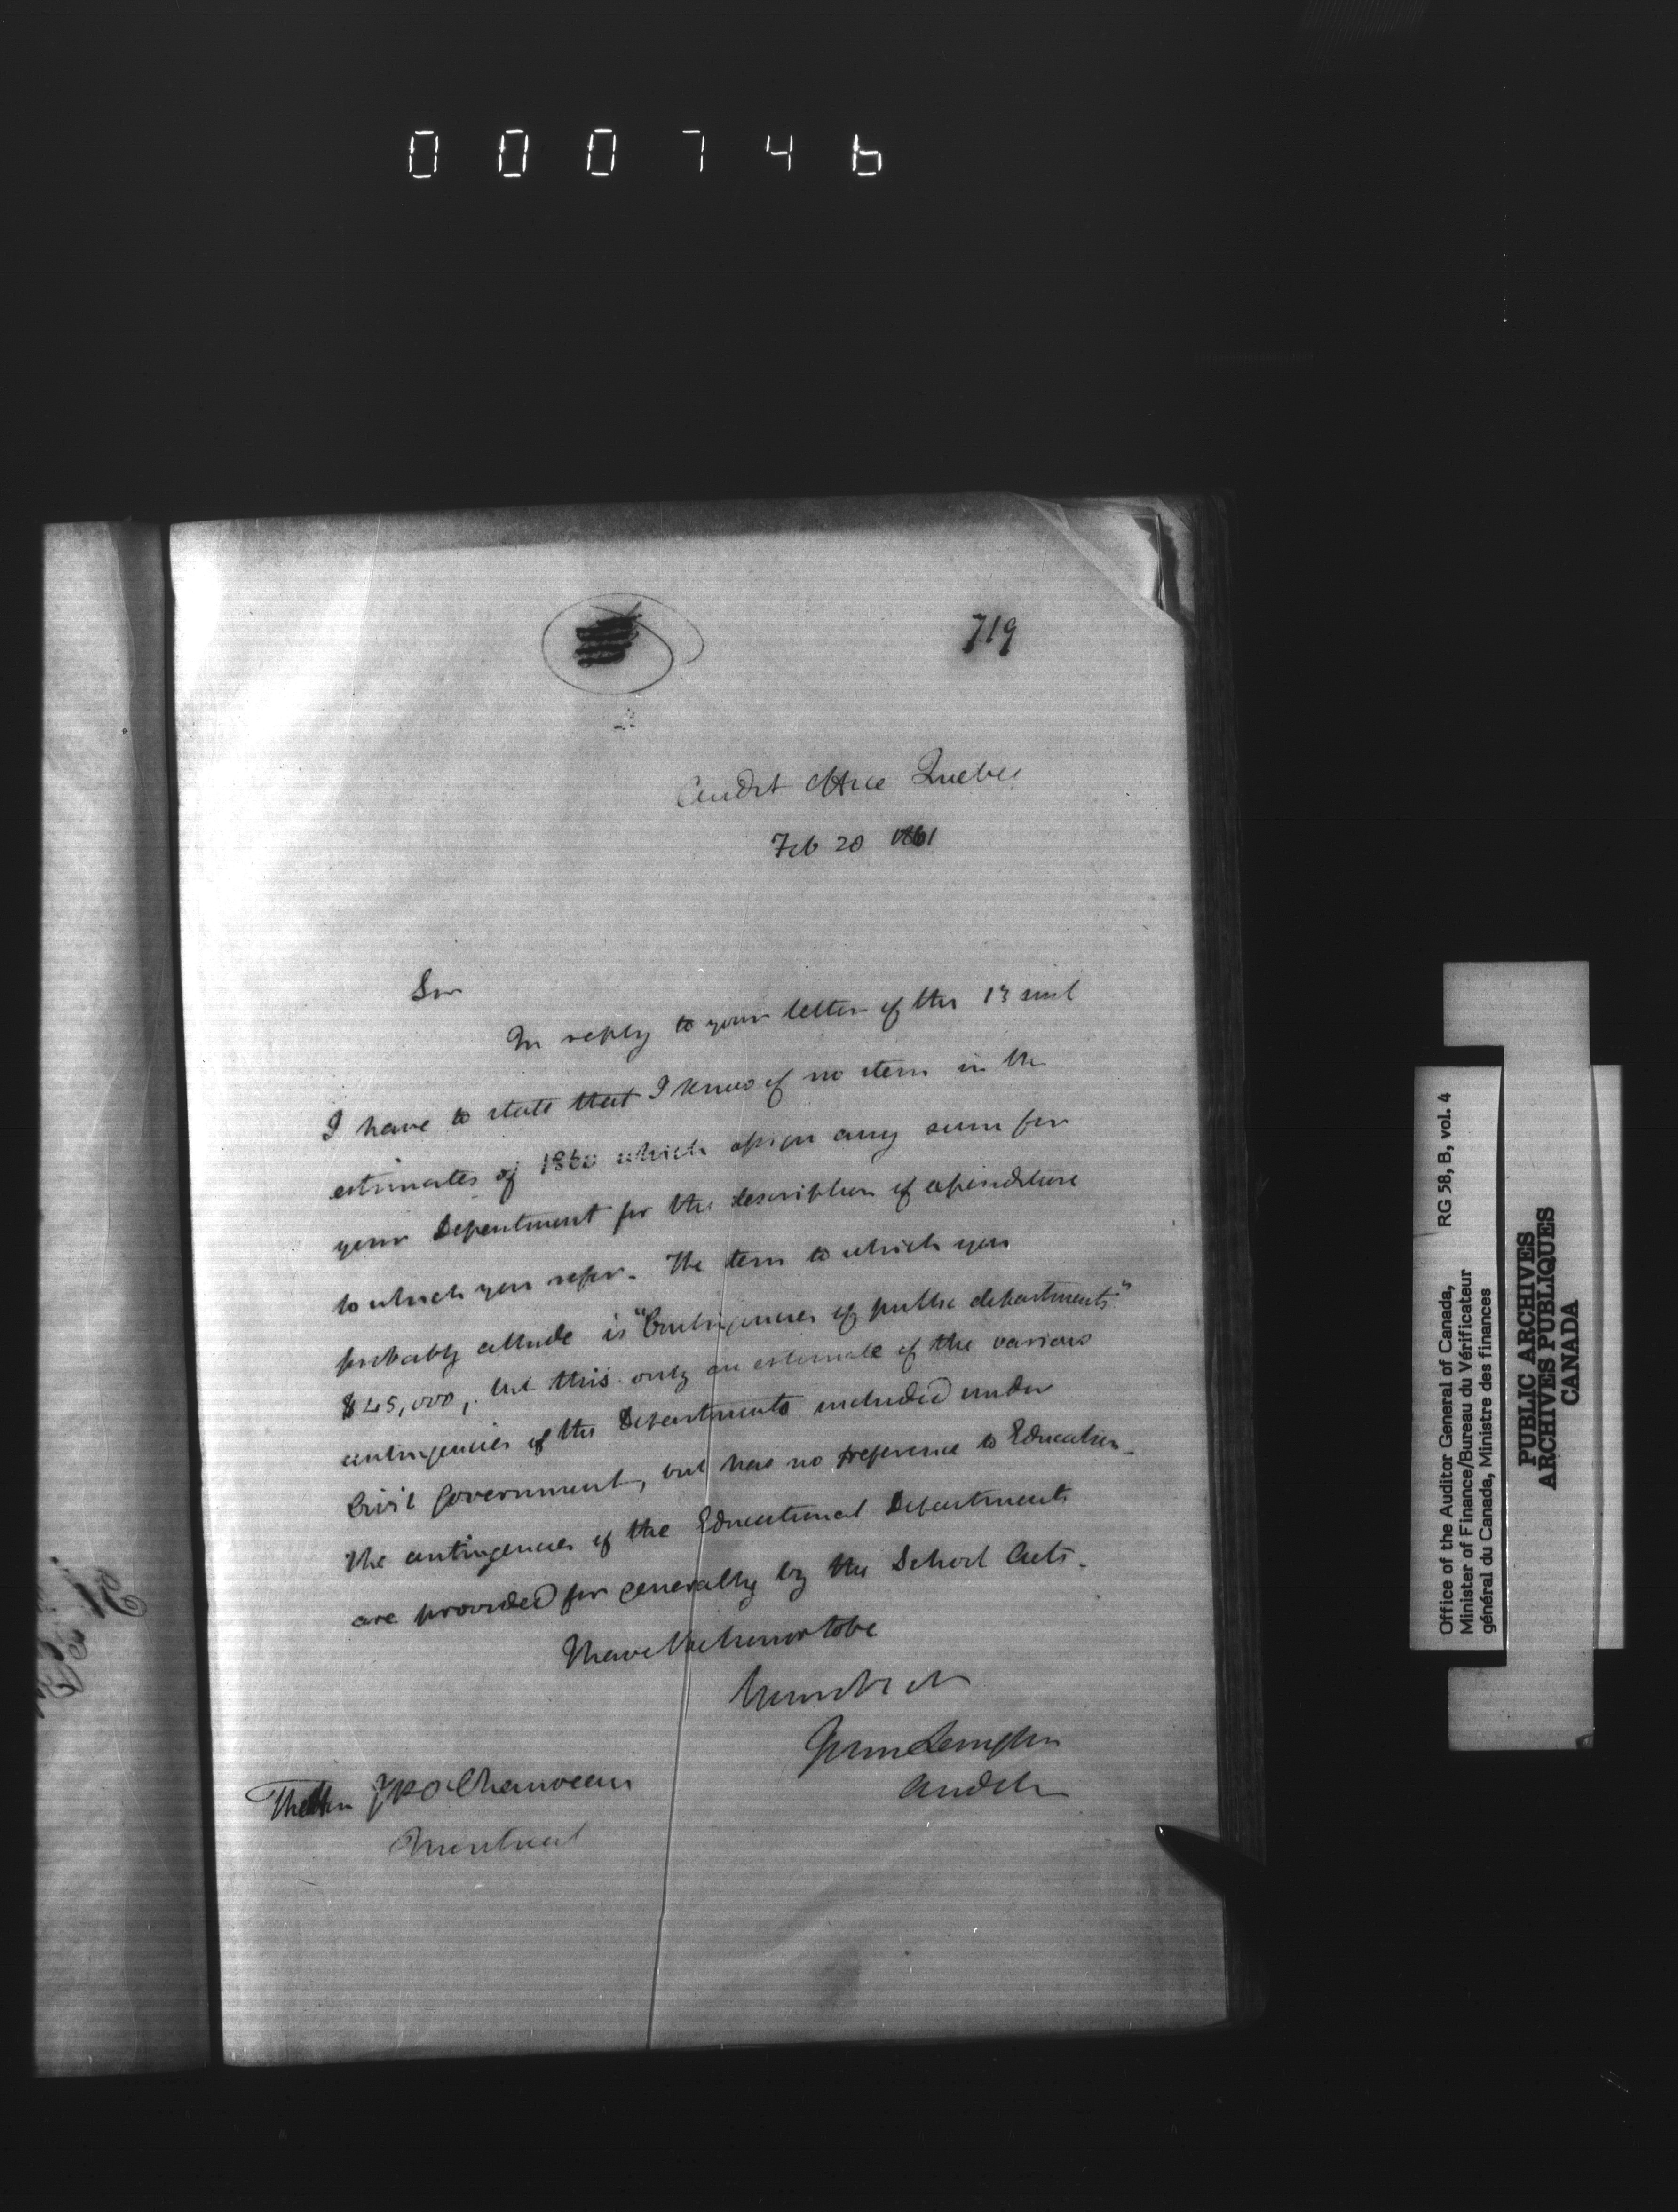 000746
719
Audit Office Quebec
Feb 20 1861
Sir
In reply to your letter of the 13 inst
I have to state that I know of no item in the
estimates of 1860 which assign any sum for
your Department for the description of expenditure
to which you refer. The item to which you
probably allude is "Contingencies of public departments"
$45,000, but this only an estimate of the various
contingencies of the Departments included under
Civil Government, but has no reference to Education.
The contingencies of the Educational Departments
are provided for generally by the School Acts.
I have the honor to be
John Langton
Auditor
The Hon P J O Chauveau
Montreal
Office of the Auditor General of Canada, RG 58, B, vol. 4
Minister of Finance/Bureau du Vérificateur
général du Canada, Ministre des finances
PUBLIC ARCHIVES
ARCHIVES PUBLIQUES
CANADA